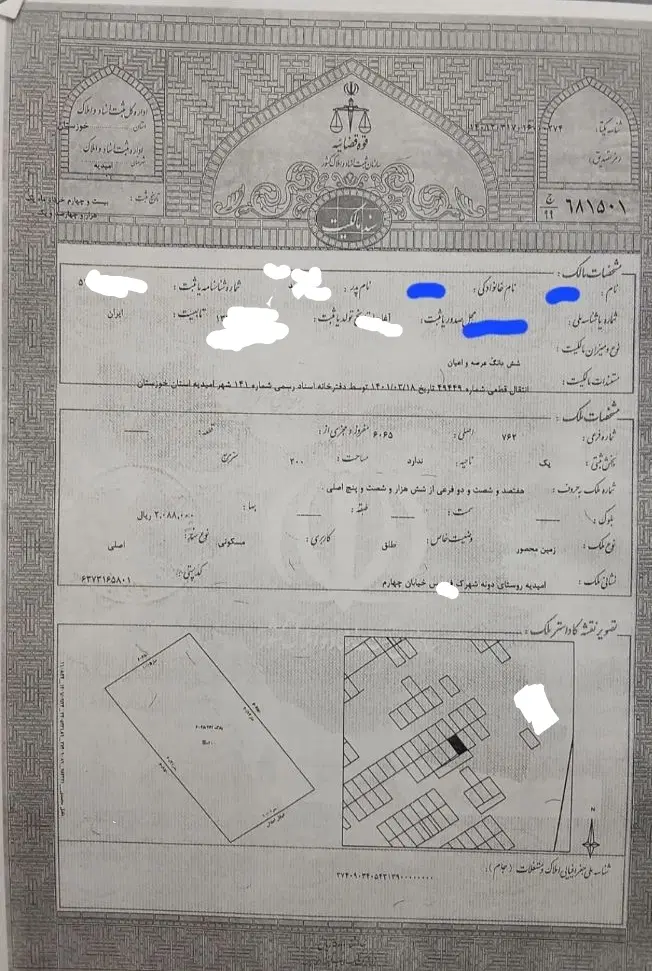 اداره کل ثبت اسناد و املاک
استان: خوزستان
اداره ثبت اسناد و املاک
شهرستان: امیدیه
تاریخ ثبت: بیست و چهارم خرداد ماه یک
هزار و چهارصد و یک
قوه قضائیه
سازمان ثبت اسناد و املاک کشور
سند مالکیت
شناسه یکتا:
رمز تصدیق:
۶۸۱۵۰۱ ج ۹۹
مشخصات مالک:
نام: نام خانوادگی: نام پدر: شماره شناسنامه یا ثبت: ۵
شماره یا شناسه ملی: محل صدور یا ثبت: تاریخ تولد یا ثبت: ۱۳ تابعیت: ایران
نوع و میزان مالکیت: شش دانگ عرصه و اعیان
مستندات مالکیت: انتقال قطعی شماره ۲۹۴۴۹ تاریخ ۱۴۰۱/۰۳/۱۸ توسط دفترخانه اسناد رسمی شماره ۱۴۱ شهر امیدیه استان خوزستان
مشخصات ملک:
شماره فرعی: ۷۶۲ اصلی: ۶۰۶۵ مفروز و مجزی از: قطعه:
بخش ثبتی: یک ناحیه: ندارد مساحت: ۲۰۰ متر مربع
شماره ملک به حروف: هفتصد و شصت و دو فرعی از شش هزار و شصت و پنج اصلی
بلوک: سمت: طبقه: بها: ۲,۰۸۸,۰۰۰ ریال
نوع ملک: زمین محصور وضعیت خاص: طلق کاربری: مسکونی نوع سند: اصلی
نشانی ملک: امیدیه روستای دونه شهرک خیابان چهارم کد پستی: ۶۳۷۳۱۶۵۸۰۱
تصویر نقشه کاداستر ملک:
N
شناسه ملی جغرافیایی املاک و مستغلات (جام):